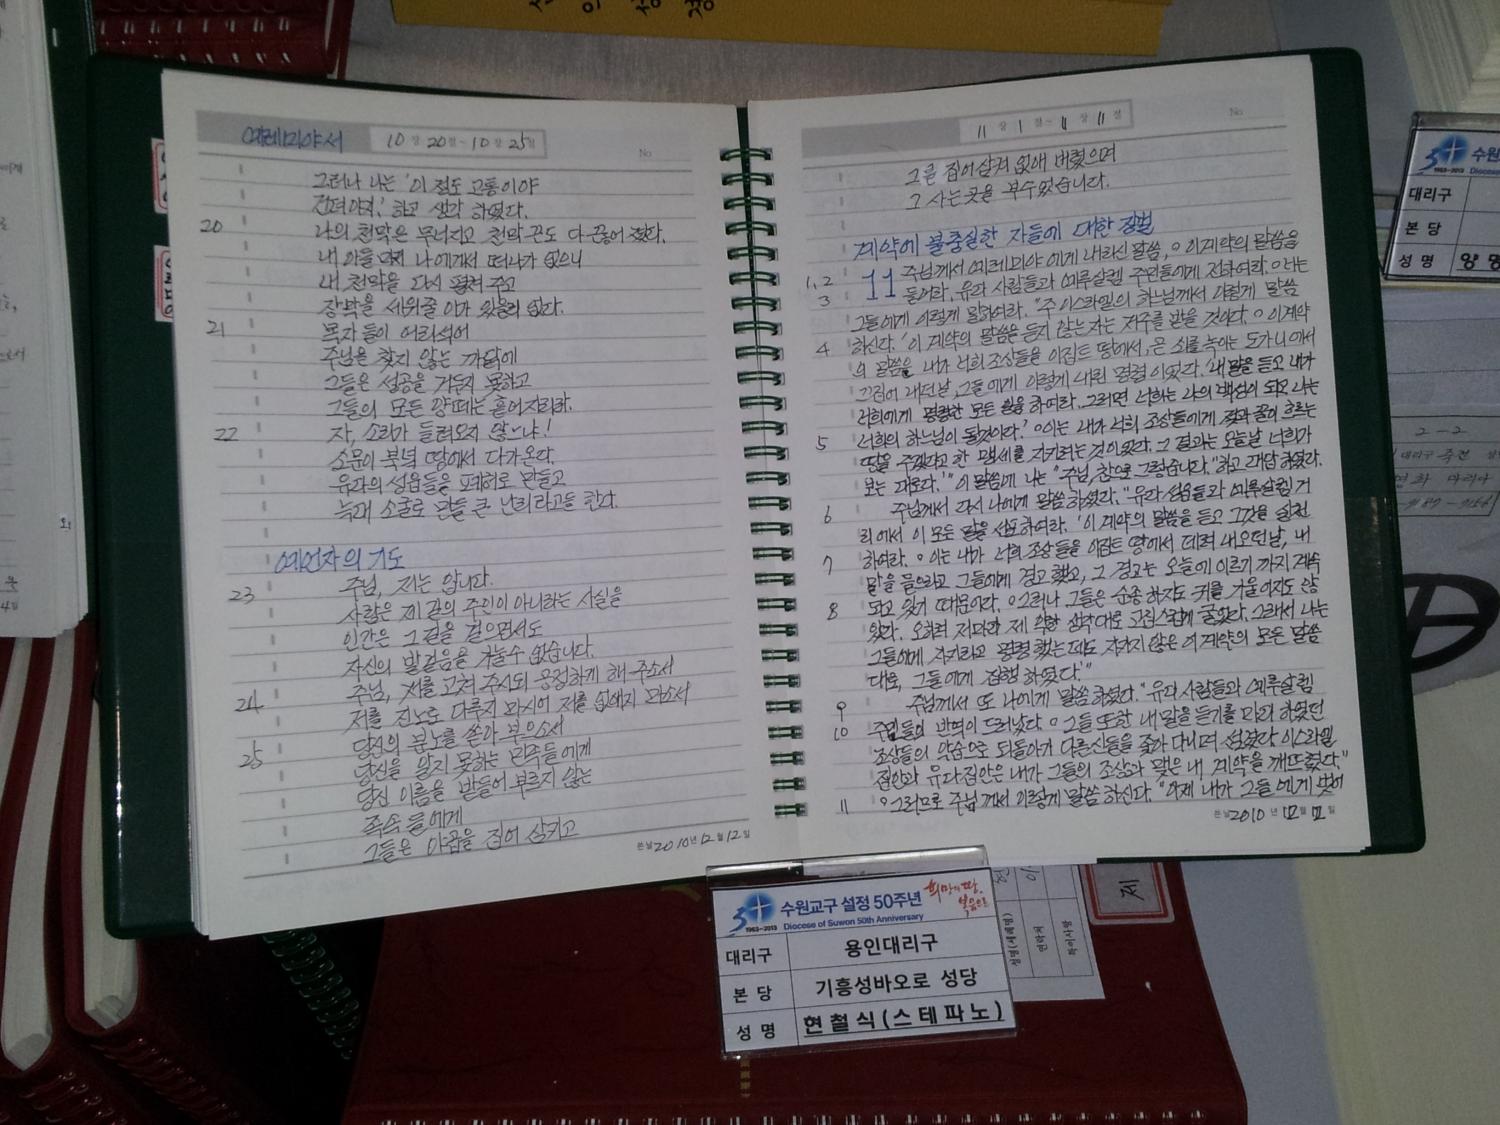 예레미야서 10장 20절~10장 25절
No
그러나 나는 '이 정도 고통이야
견뎌야지.' 하고 생각 하였다.
20 나의 천막은 무너지고 천막 끈도 다 끊어 졌다.
내 아들 마저 나에게서 떠나가 없으니
내 천막을 다시 펼쳐 주고
장막을 세워줄 이가 있을리 없다.
21 목자 들이 어리석어
주님을 찾지 않는 까닭에
그들은 성공을 거두지 못하고
그들의 모든 양 떼는 흩어지리라.
22 자, 소리가 들려오지 않느냐!
소문이 북녘 땅에서 다가온다.
유다의 성읍들을 폐허로 만들고
늑대 소굴로 만들 큰 난리라고들 한다.
예언자의 기도
23 주님, 저는 압니다.
사람은 제 길의 주인이 아니라는 사실을
인간은 그 길을 걸으면서도
자신의 발걸음을 가눌수 없습니다.
24 주님, 저를 고쳐 주시되 공정하게 해 주소서
저를 진노로 다루지 마시어 저를 없애지 마소서
25 당신의 분노를 쏟아 부으소서
당신을 알지 못하는 민족들 에게
당신 이름을 받들어 부르지 않는
족속 들에게
그들은 야곱을 집어 삼키고
쓴날 2010년 12월 12일
11장 1절~11장 11절
No
그를 집어 삼켜 없애 버렸으며
그 사는 곳을 부수었습니다.
계약에 불충실한 자들에 대한 징벌
1,2 11 주님께서 예레미야 에게 내리신 말씀, ㅇ 이 계약의 말씀을
3 들어라. 유다 사람들과 예루살렘 주민들에게 전하여라. ㅇ 너는
그들에게 이렇게 말하여라. "주 이스라엘의 하느님께서 이렇게 말씀
4 하신다. '이 계약의 말씀을 듣지 않는 자는 저주를 받을 것이다. ㅇ 이 계약
의 말씀을 내가 너희 조상들을 이집트 땅에서, 곧 쇠를 녹이는 도가니에서
끄집어 내던 날, 그들 에게 이렇게 내린 명령 이었다. '내 말을 듣고 내가
너희에게 명령한 모든 일을 하여라. 그러면 너희는 나의 백성이 되고 나는
5 너희의 하느님이 될것이다.' ㅇ 이는 내가 너희 조상들에게 젖과 꿀이 흐르는
땅을 주겠다고 한 맹세를 지키려는 것이었다. 그 결과는 오늘날 너희가
보는 대로다.'" 이 말씀에 나는 "주님, 참으로 그렇습니다." 하고 대답 하였다.
6 주님께서 다시 나에게 말씀 하셨다. "유다 성읍들과 예루살렘 거
리에서 이 모든 말을 선포 하여라. '이 계약의 말씀을 듣고 그것을 실천
7 하여라. ㅇ 이는 내가 너희 조상 들을 이집트 땅에서 데려 내오던 날, 내
말을 들으라고 그들에게 경고 했고, 그 경고는 오늘에 이르기 까지 계속
8 되고 있기 때문이다. ㅇ 그러나 그들은 순종 하지도 귀를 기울 이지도 않
았다. 오히려 저마다 제 악한 생각대로 고집스럽게 굴었다. 그래서 나는
그들에게 지키라고 명령 했는데도 지키지 않은 이 계약의 모든 말씀
대로, 그들 에게 집행 하였다.'"
9 주님께서 또 나에게 말씀 하셨다. "유다 사람들과 예루살렘
10 주민들의 반역이 드러났다. ㅇ 그들 또한 내 말을 듣기를 마다 하였던
조상들의 악습으로 되돌아가 다른신들을 쫓아 다니며 섬겼다. 이스라엘
집안과 유다 집안은 내가 그들의 조상과 맺은 내 계약을 깨뜨렸다."
11 ㅇ 그러므로 주님 께서 이렇게 말씀 하신다. "이제 내가 그들 에게 벗어
쓴날 2010년 12월 12일
1963~2013
수원교구 설정 50주년
희망의 땅, 복음으로
Diocese of Suwon 50th Anniversary
대리구 용인대리구
본당 기흥성바오로 성당
성명 현철식(스테파노)
수원
Diocese
대리구
본당
성명 양명
제
연락처